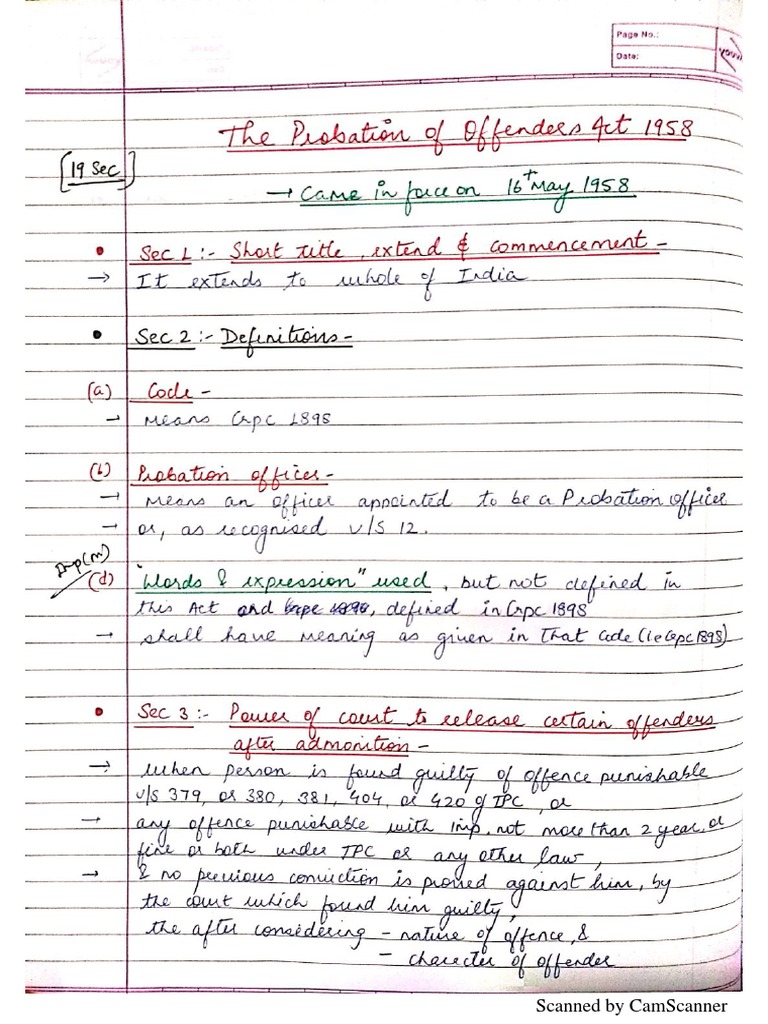 Page No.:
Date:
youva
The Probation of Offenders Act 1958
[19 Sec]
→ Came in force on 16th May 1958
• Sec 1 :- Short title, extend & commencement -
→ It extends to whole of India
• Sec 2 :- Definitions -
(a) Code -
→ Means Crpc 1898
(b) Probation officer -
→ Means an officer appointed to be a Probation officer
→ or, as recognised v/s 12.
Imp(m)
(d) "Words & expression" used, but not defined in
this Act and Crpc 1898, defined in Crpc 1898
→ shall have meaning as given in that Code (i.e Crpc 1898)
• Sec 3 :- Power of court to release certain offenders
after admonition -
→ When person is found guilty of offence punishable
v/s 379, or 380, 381, 404, or 420 of IPC, or
→ any offence punishable with imp. not more than 2 year, or
fine or both under IPC or any other law,
→ & no previous conviction is proved against him, by
the court which found him guilty,
the after considering - nature of offence, &
- character of offender
Scanned by CamScanner